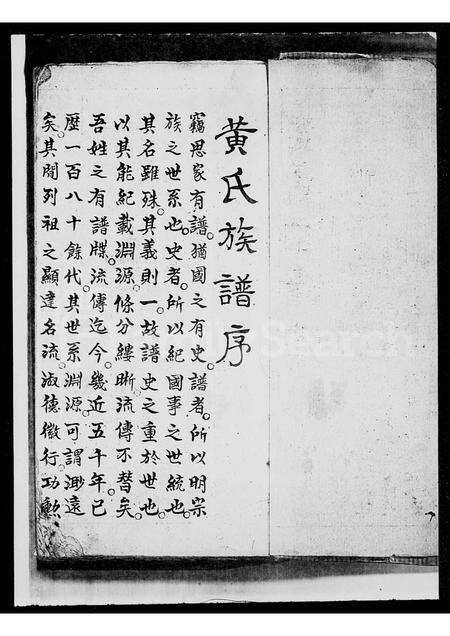 黃氏族譜序
竊思家有譜。猶國之有史。譜者。所以明宗
族之世系也。史者。所以紀國事之世統也。
其名雖殊。其義則一。故譜史之重於世也。
以其能紀載淵源。條分縷晰流傳不替矣。
吾姓之有譜牒。流傳迄今。幾近五千年。已
歷一百八十餘代。其世系淵源。可謂渺遠
矣。其間列祖之顯達名流。淑德徽行。功勳